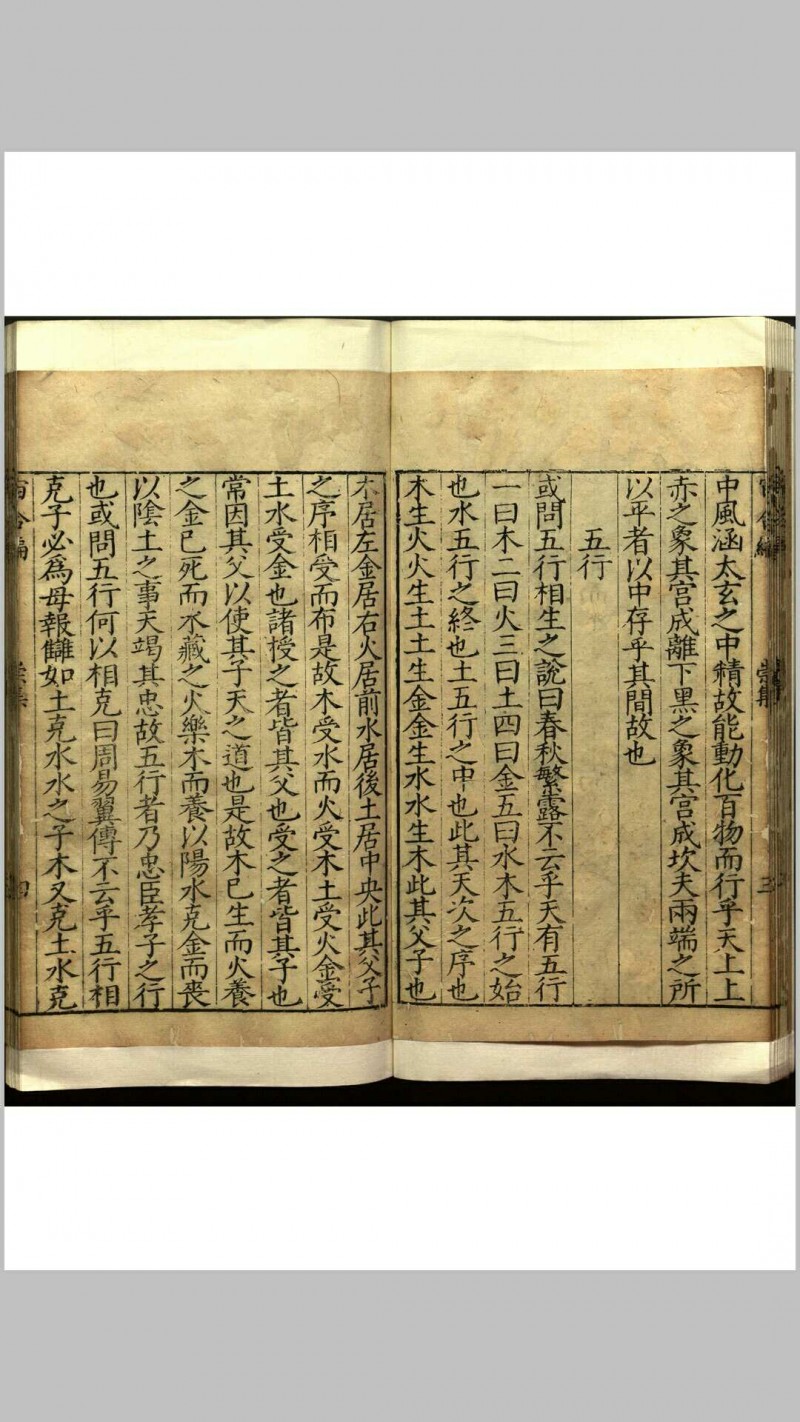 中風涵太玄之中精故能動化百物而行乎天上上
赤之象其宫成離下黑之象其宫成坎夫兩端之所
以平者以中存乎其間故也
五行
或問五行相生之說曰春秋繁露不云乎天有五行
一曰木二曰火三曰土四曰金五曰水木五行之始
也水五行之終也土五行之中也此其天次之序也
木生火火生土土生金金生水水生木此其父子也
木居左金居右火居前水居後土居中央此其父子
之序相受而布是故木受水而火受木土受火金受
土水受金也諸授之者皆其父也受之者皆其子也
常因其父以使其子天之道也是故木已生而火養
之金已死而水藏之火樂木而養以陽水克金而喪
以陰土之事天竭其忠故五行者乃忠臣孝子之行
也或問五行何以相克曰周易翼傳不云乎五行相
克子必爲母報讎如土克水水之子木又克土水克